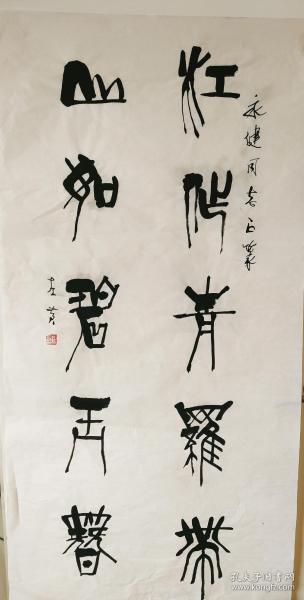 永健同志正篆
江作青羅帶
山如碧玉簪
孔夫子旧书网
www.kongfz.com